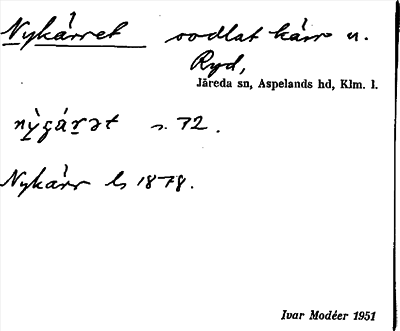 Nykärret oodlat kärr n.
Ryd,
Järeda sn, Aspelands hd, Klm. l.
nỳgárət s. 72.
Nykärr ls 1878.
Ivar Modéer 1951